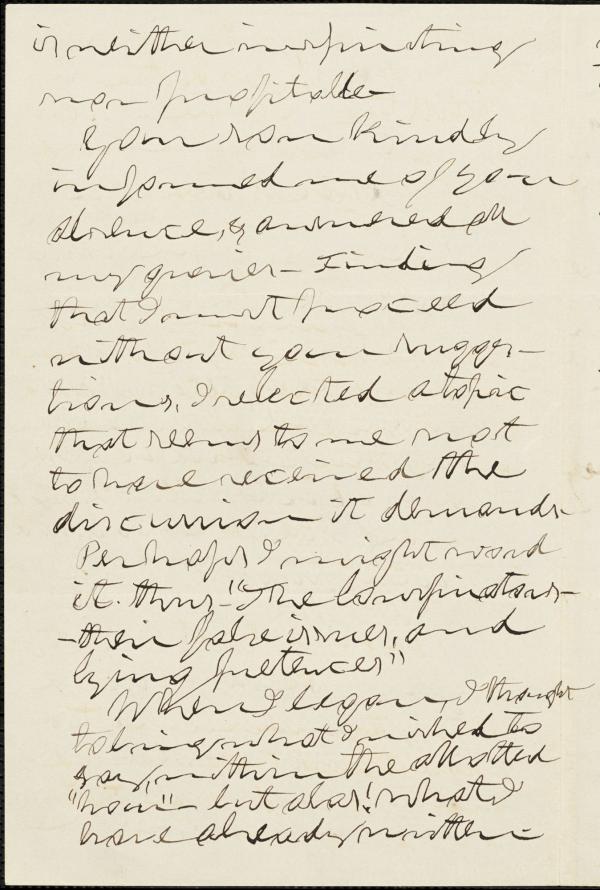 is neither inspiriting
nor profitable—
Your son kindly
informed me of your
absence, & answered all
my queries— Finding
that I must proceed
without your sugges-
tions, I selected a topic
that seems to me not
to have received the
discussion it demands—
Perhaps I might word
it. thus— "The Conspirators—
—their false issues, and
lying pretences"
When I began, I thought
to bring what I wished to
say, within the allotted
"hour"— but alas! what I
have already written—